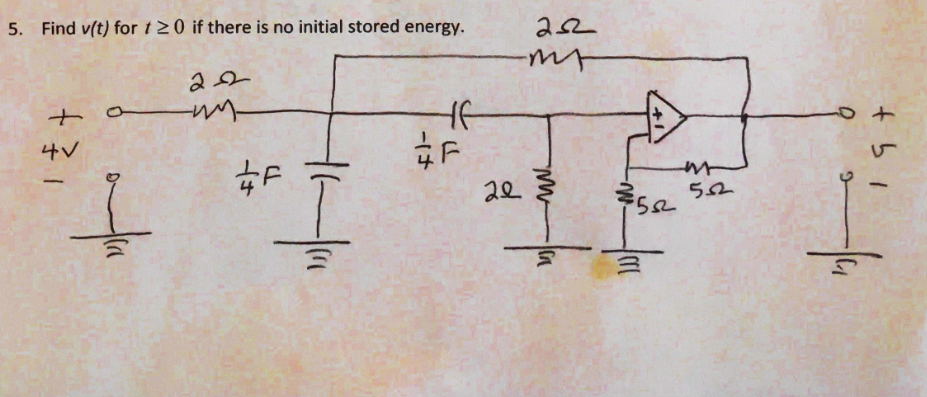 5. Find v(t) for t ≥ 0 if there is no initial stored energy.
2Ω
2Ω
+
4V
−
1/4 F
1/4 F
2Ω
+
−
5Ω
5Ω
+
υ
−